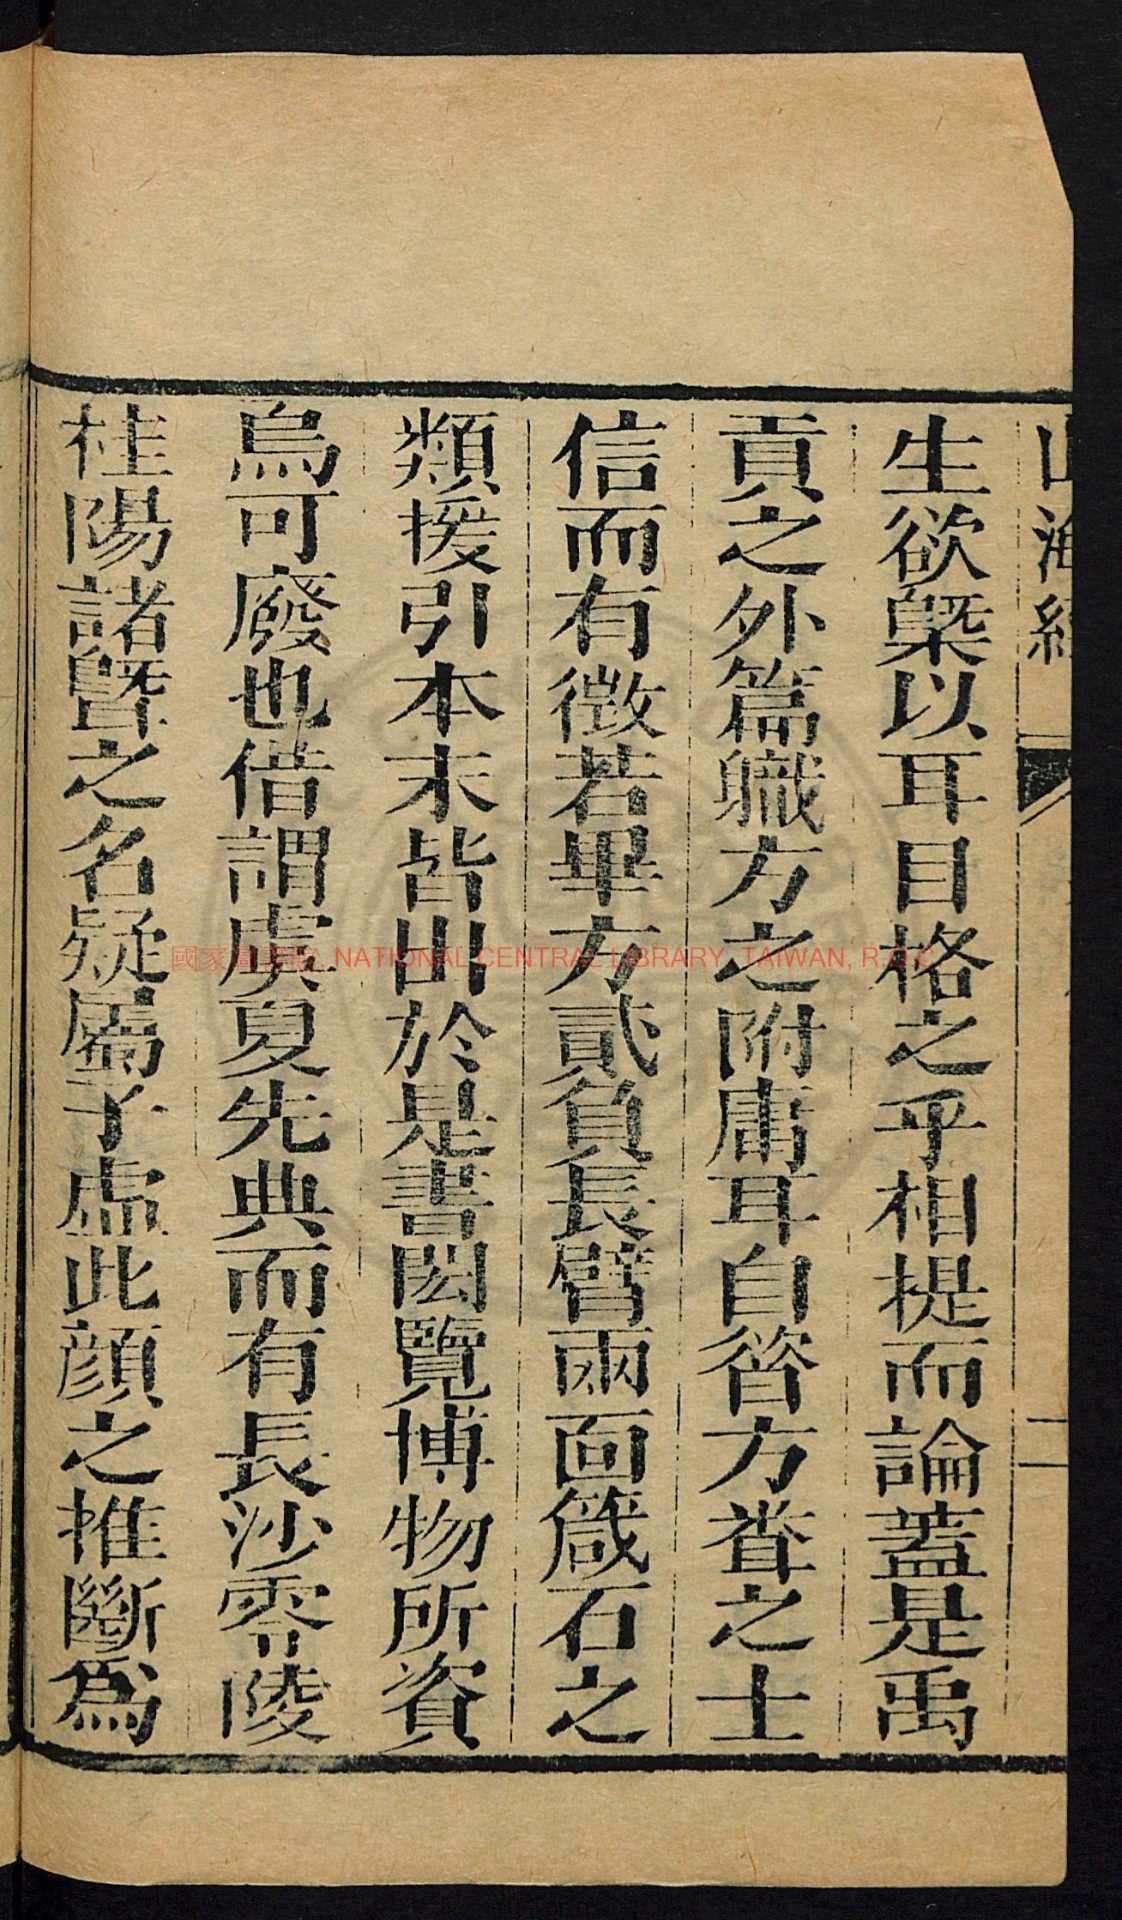 山海經
二
生欲槩以耳目格之乎相提而論蓋是禹
貢之外篇職方之附庸耳自昝方沓之士
信而有徵若畢方貳負長臂兩面箴石之
類援引本末皆出於是書閎覽博物所資
烏可廢也借謂虞夏先典而有長沙零陵
桂陽諸暨之名疑屬子虛此顔之推斷爲
國家圖書館, NATIONAL CENTRAL LIBRARY, TAIWAN, R.O.C